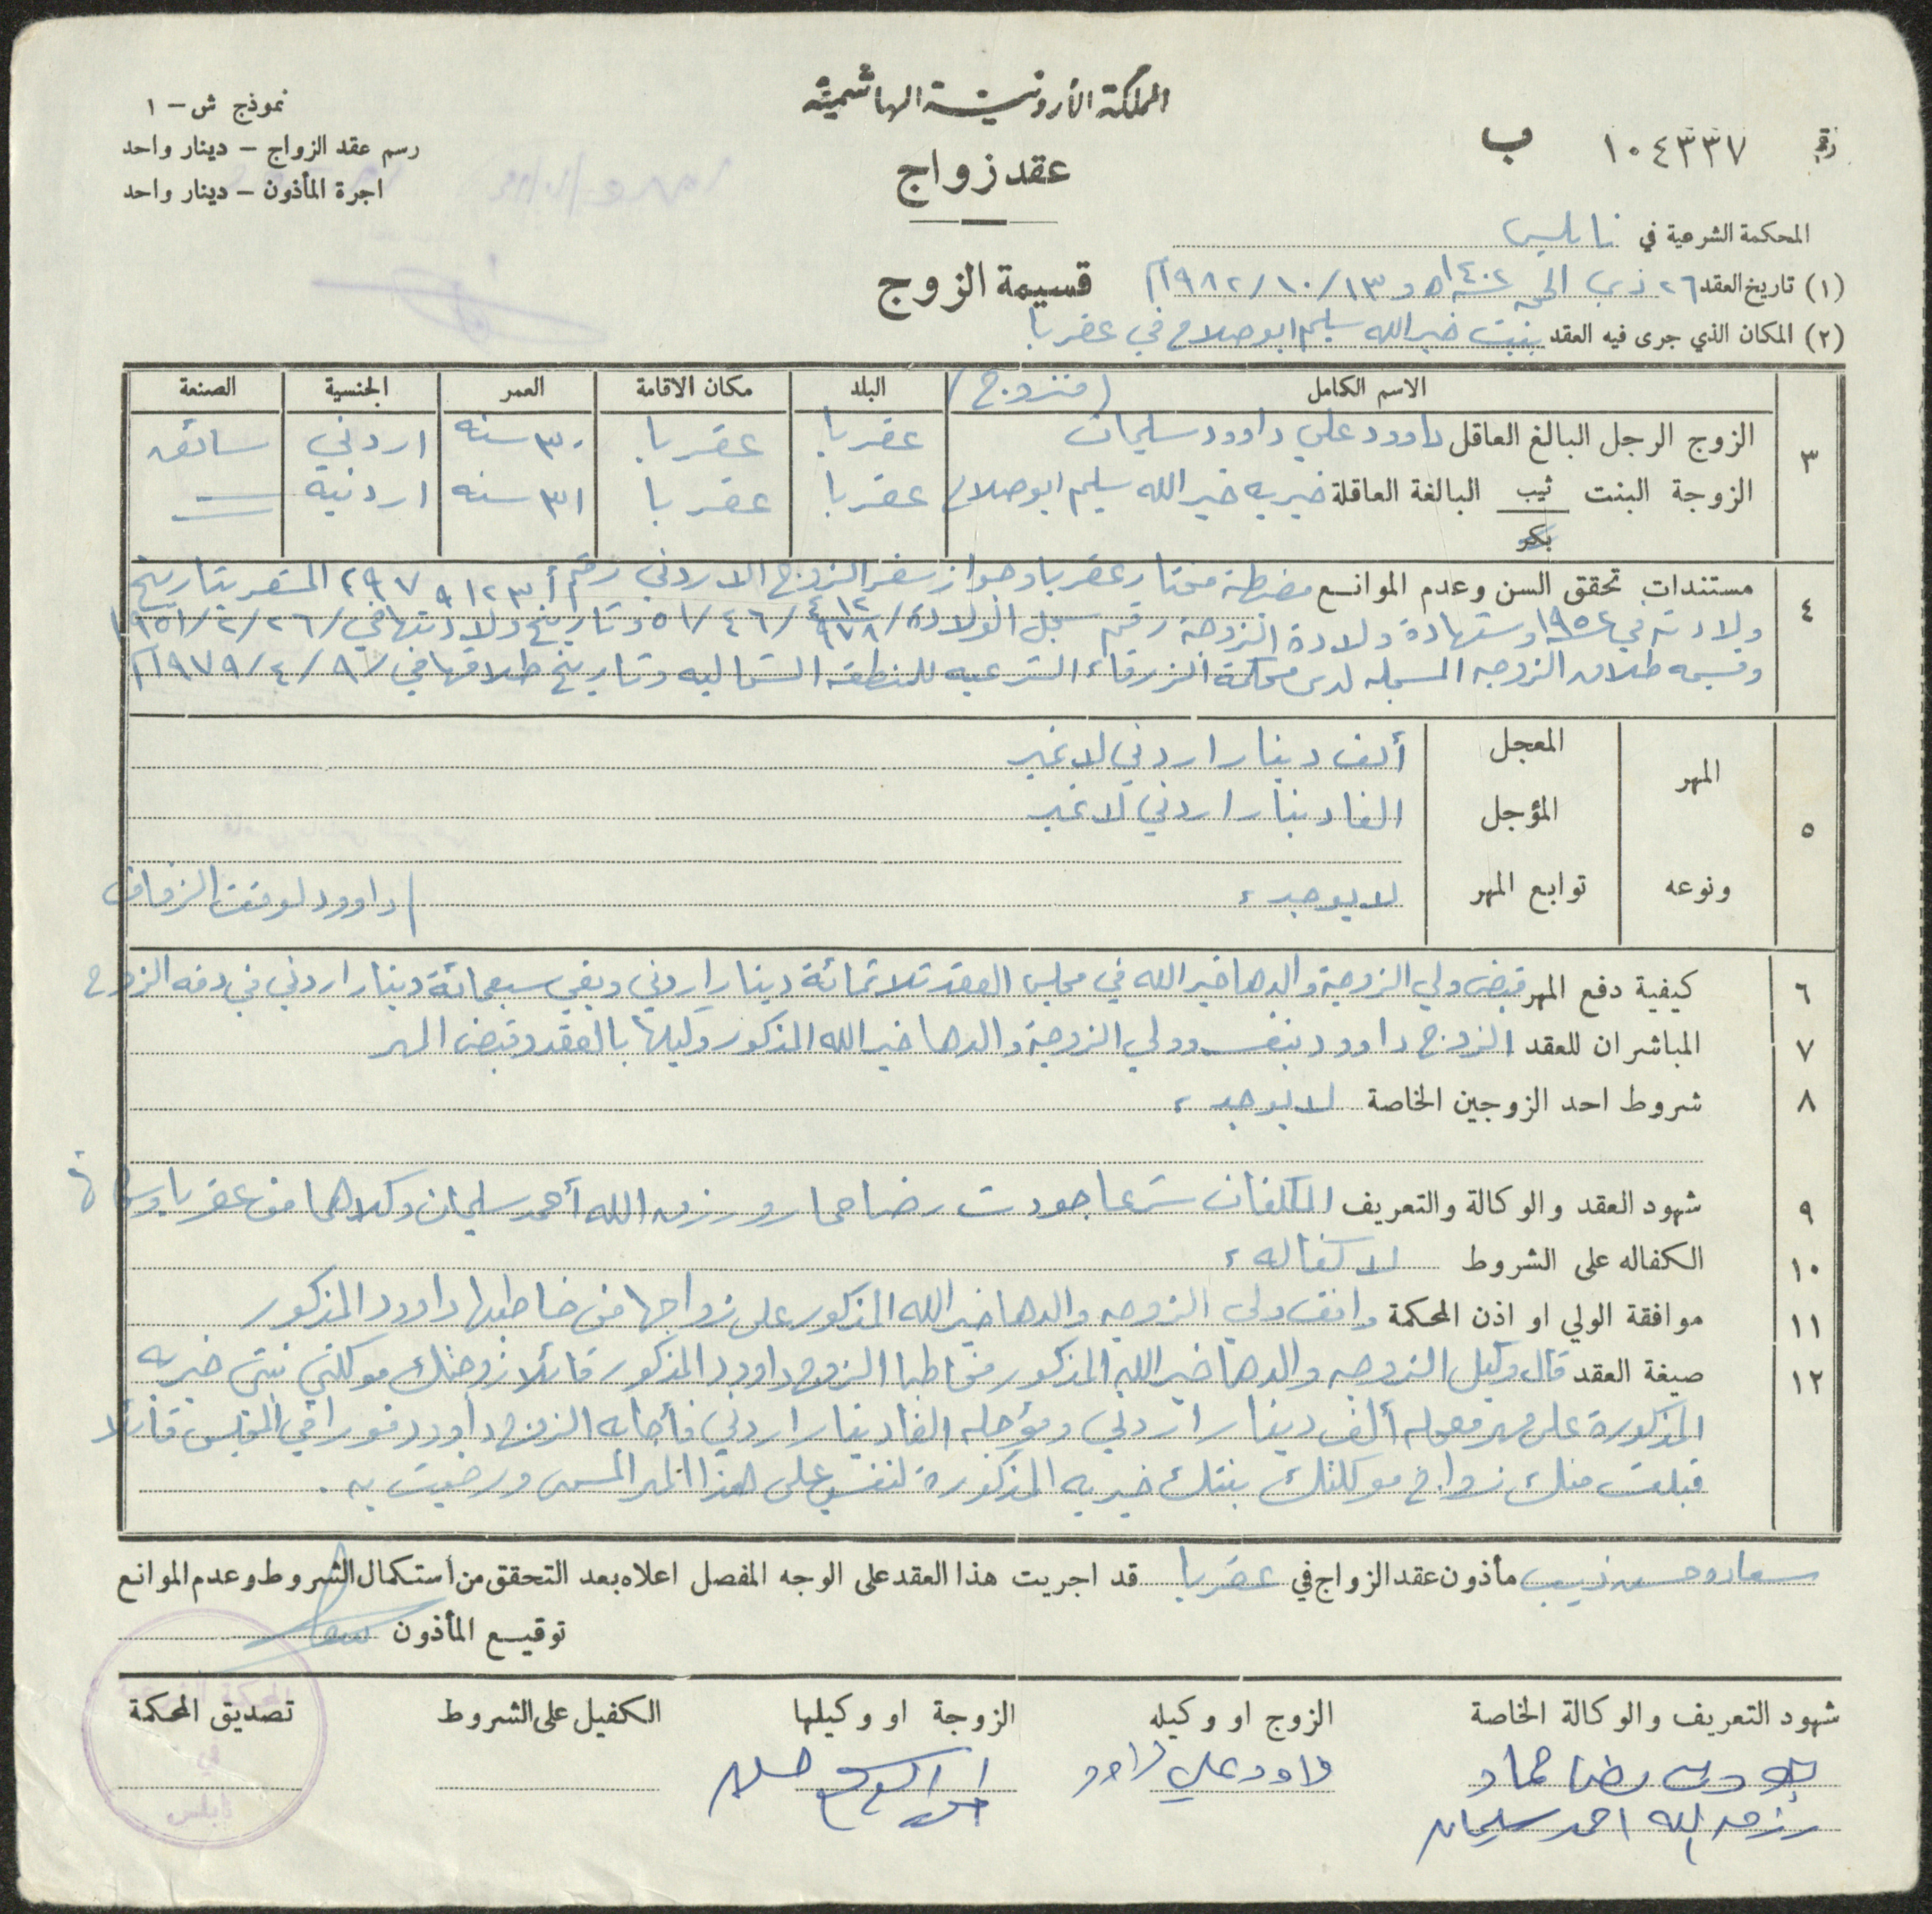 المملكة الأردنية الهاشمية
نموذج ش - ١
رقم ١٠٤٣٣٧ ب
رسم عقد الزواج - دينار واحد
عقد زواج
اجرة المأذون - دينار واحد
المحكمة الشرعية في نابلس
(١) تاريخ العقد ٢٦ ذي الحجه سنة ١٤٠٢هـ و ١٣/١٠/١٩٨٢م
قسيمة الزوج
(٢) المكان الذي جرى فيه العقد ببيت خير الله سليم ابو صلاح في عقربا
الاسم الكامل (متزوج) البلد مكان الاقامة العمر الجنسية الصنعة
٣
الزوج الرجل البالغ العاقل داوود علي داوود سليمان عقربا عقربا ٣٠ سنه اردني سائق
الزوجة البنت ثيب البالغة العاقلة خيريه خير الله سليم ابو صلاح عقربا عقربا ٣١ سنه اردنيه
بكر
٤ مستندات تحقق السن وعدم الموانع مضبطة مختار عقربا وجواز سفر الزوج الاردني رقم أ المشعر بتاريخ
ولادته في ١٩٥٢ وشهادة ولادة الزوجة رقم سجل الولادة / ٤٦/٥١ وتاريخ ولادتها في / ٢٦/٢/١٩٥١
وقسيمه طلاق الزوجه المسجله لدى محكمة الزرقاء الشرعيه للمنطقه الشماليه وتاريخ طلاقها في / ٨/٤/١٩٧٩م
٥ المهر المعجل ألف دينار اردني لا غير
المؤجل الفا دينار اردني لا غير
ونوعه توابع المهر لا يوجد ،
٦ كيفية دفع المهر قبض ولي الزوجة والدها خير الله في مجلس العقد ثلاثمائة دينار اردني وبقي سبعمائة دينار اردني في ذمه الزوج
/ داوود لوقت الزفاف
٧ المباشران للعقد الزوج داوود بنفسه وولي الزوجة والدها خير الله المذكور وكيلها بالعقد وقبض المهر
٨ شروط احد الزوجين الخاصة لا يوجد ،
٩ شهود العقد والوكالة والتعريف المكلفان شرعا جودت رضا حماد ورزق الله أحمد سليمان وكلاهما من عقربا
١٠ الكفاله على الشروط لا كفاله ،
١١ موافقة الولي او اذن المحكمة وافق ولي الزوجه والدها خير الله المذكور على زواجها من خاطبها داوود المذكور
١٢ صيغة العقد قال وكيل الزوجه والدها خير الله المذكور مخاطبا الزوج داوود المذكور قائلا زوجتك موكلتي بنتي خيريه
المذكورة على مهر معجله ألف دينار اردني ومؤجله الفا دينار اردني فأجابه الزوج داوود فورا في المجلس قائلا
قبلت منك زواج موكلتك بنتك خيريه المذكورة لنفسي على هذا المهر المسمى ورضيت به .
مأذون عقد الزواج في عقربا قد اجريت هذا العقد على الوجه المفصل اعلاه بعد التحقق من استكمال الشروط وعدم الموانع
توقيع المأذون
شهود التعريف والوكالة الخاصة الزوج او وكيله الزوجة او وكيلها الكفيل على الشروط تصديق المحكمة
جودت رضا حماد داود علي داود
رزق الله احمد سليمان
المحكمة الشرعية
في
نابلس